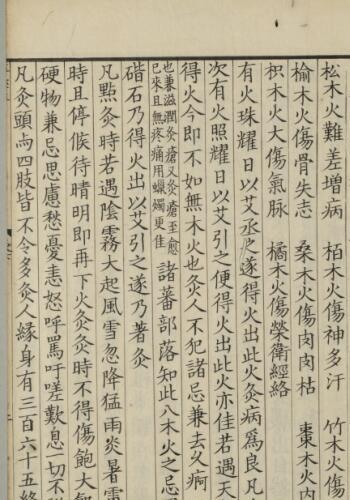 松木火難差增病　柏木火傷神多汗　竹木火傷
榆木火傷骨失志　桑木火傷肉肉枯　棗木火內
枳木火大傷氣脉　橘木火傷榮衛經絡
有火珠耀日以艾丞之遂得火出此火灸病爲良凡
次有火照耀日以艾引之便得火出此火亦佳若遇天
得火今即不如無木火也灸人不犯諸忌兼去久痾
也兼滋潤灸瘡又灸瘡至愈
已來且無疼痛用蠟燭更佳
諸蕃部落知此八木火之忌
碏石乃得火出以艾引之遂乃著灸
凡點灸時若遇陰霧大起風雪忽降猛雨炎暑雷
時且停候待晴明即再下火灸灸時不得傷飽大
硬物兼忌思慮愁憂恚怒呼罵吁嗟歎息一切不
凡灸頭與四肢皆不令多灸人緣身有三百六十五絡